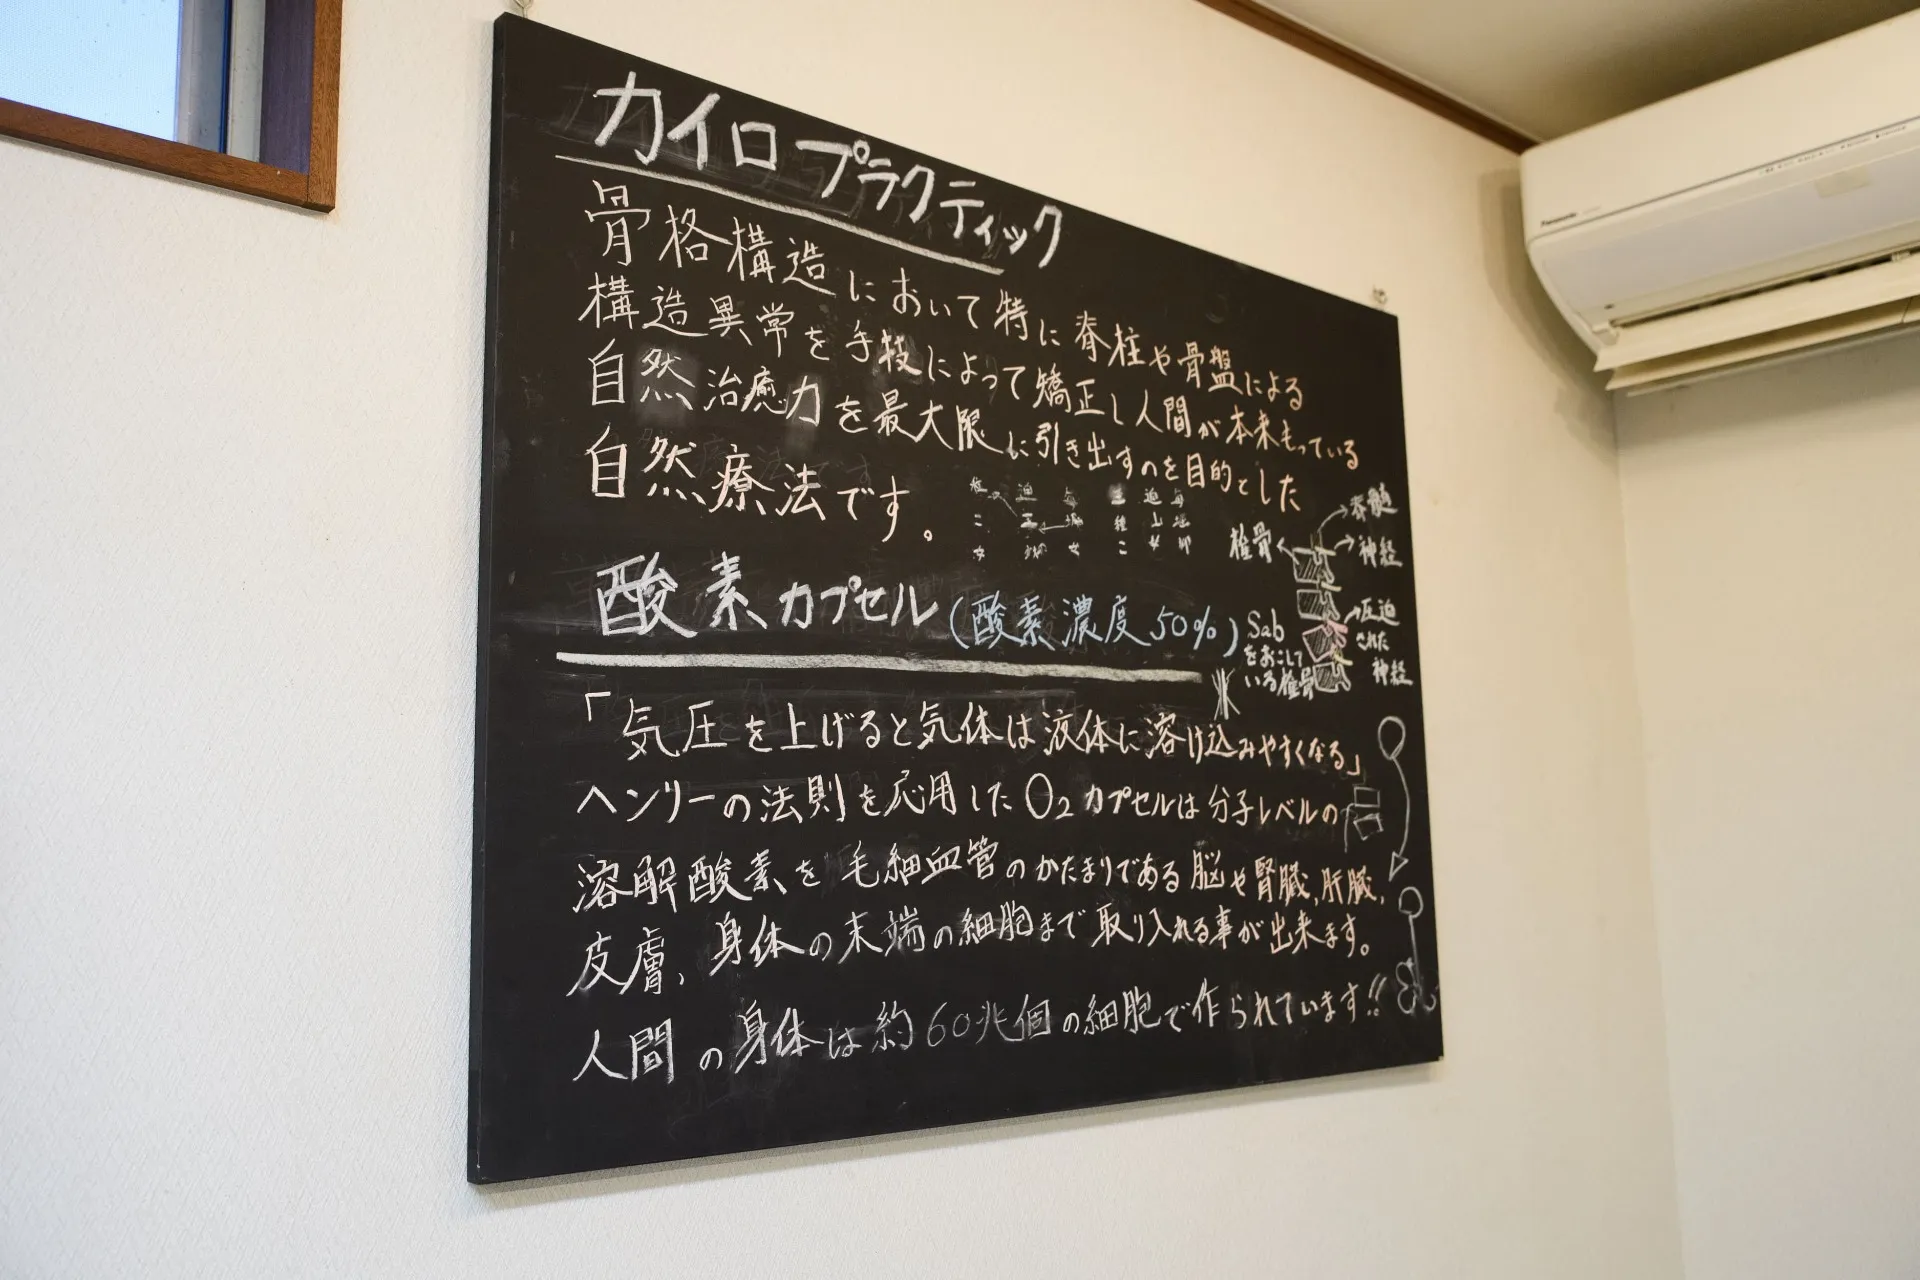 カイロプラクティック
骨格構造において特に脊柱や骨盤による
構造異常を手技によって矯正し人間が本来もっている
自然治癒力を最大限に引き出すのを目的とした
自然療法です。
脊髄
椎骨
神経
酸素カプセル(酸素濃度50%)
Sab
をおこして
いる椎骨
圧迫
された
神経
「気圧を上げると気体は液体に溶け込みやすくなる」
ヘンリーの法則を応用したO₂カプセルは分子レベルの
溶解酸素を毛細血管のかたまりである脳や腎臓,肝臓,
皮膚,身体の末端の細胞まで取り入れる事が出来ます。
人間の身体は約60兆個の細胞で作られています!!
Panasonic